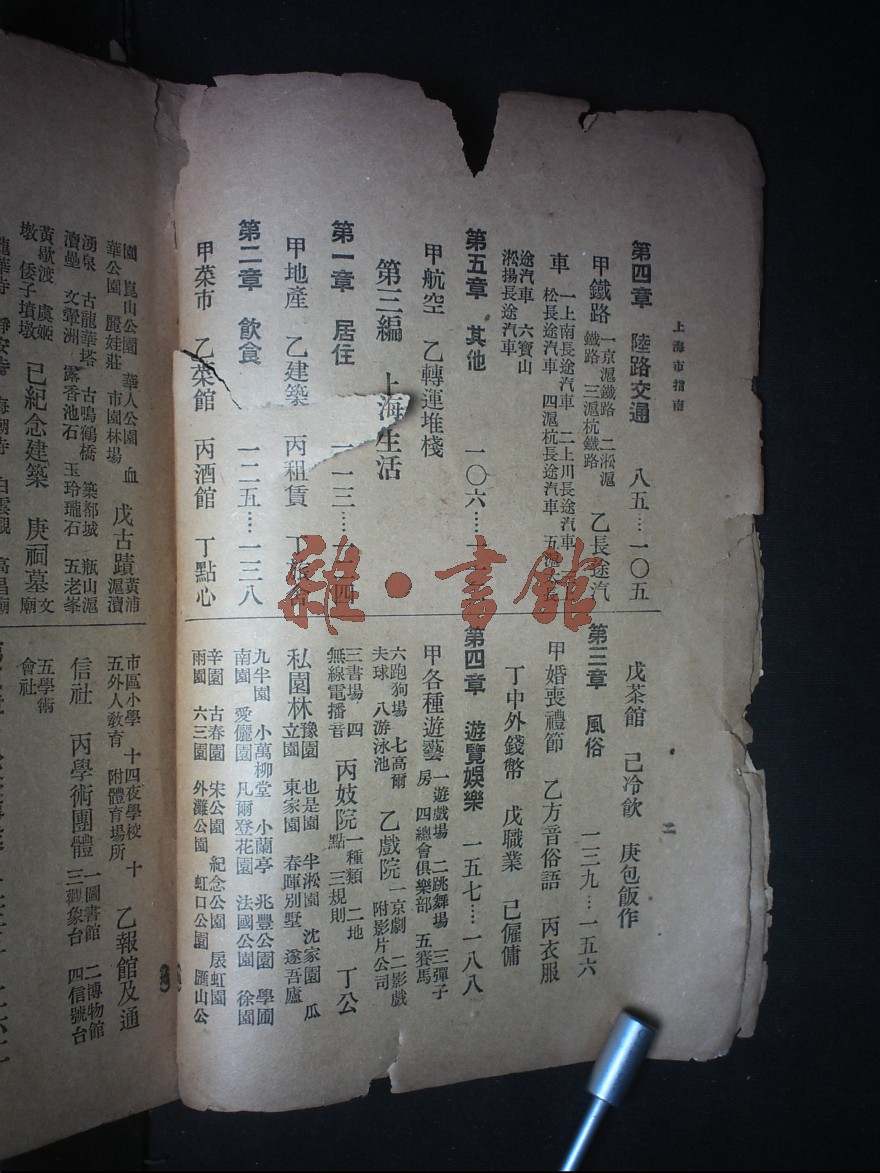 上海市指南
二
第四章 陸路交通 八五…一〇五
甲鐵路 一京滬鐵路 二淞滬鐵路 三滬杭鐵路 乙長途汽
車 一上南長途汽車 二上川長途汽車
松長途汽車 四滬杭長途汽車 五滬
途汽車 六寶山
淞揚長途汽車
第五章 其他 一〇六…
甲航空 乙轉運堆棧
第三編 上海生活
第一章 居住 一一三…
甲地產 乙建築 丙租賃
第二章 飲食 一二五…一三八
甲菜市 乙菜館 丙酒館 丁點心
戊茶館 己冷飲 庚包飯作
第三章 風俗 一三九…一五六
甲婚喪禮節 乙方音俗語 丙衣服
丁中外錢幣 戊職業 己僱傭
第四章 遊覽娛樂 一五七…一八八
甲各種遊藝 一遊戲場 二跳舞場 三彈子
房 四總會俱樂部 五賽馬
六跑狗場 七高爾
夫球 八游泳池 乙戲院 一京劇 二影戲
附影片公司
三書場 四
無線電播音 丙妓院 一種類 二地
點 三規則 丁公
私園林 豫園 也是園 半淞園 沈家園 瓜
立園 東家園 春暉別墅 遂吾廬
九半園 小萬柳堂 小蘭亭 兆豐公園 學圃
南園 愛儷園 凡爾登花園 法國公園 徐園
辛園 古春園 宋公園 紀念公園 扆虹園
雨園 六三園 外灘公園 虹口公園 匯山公
園 崑山公園 華人公園 血
華公園 麗娃莊 市園林場 戊古蹟 黃浦
滬瀆
湧泉 古龍華塔 古鳴鶴橋 築耶城 瓶山滬
瀆壘 文罩洲 露香池石 玉玲瓏石 五老峯
黃歇渡 虞姬
墩 倭子墳墩 己紀念建築 庚祠墓 文
廟
龍華寺 靜安寺 海潮寺 白雲觀 高昌廟
市區小學 十四夜學校 十
五外人教育 附體育場所 乙報館及通
信社 丙學術團體 一圖書館 二博物館
三觀象台 四信號台
五學術
會社